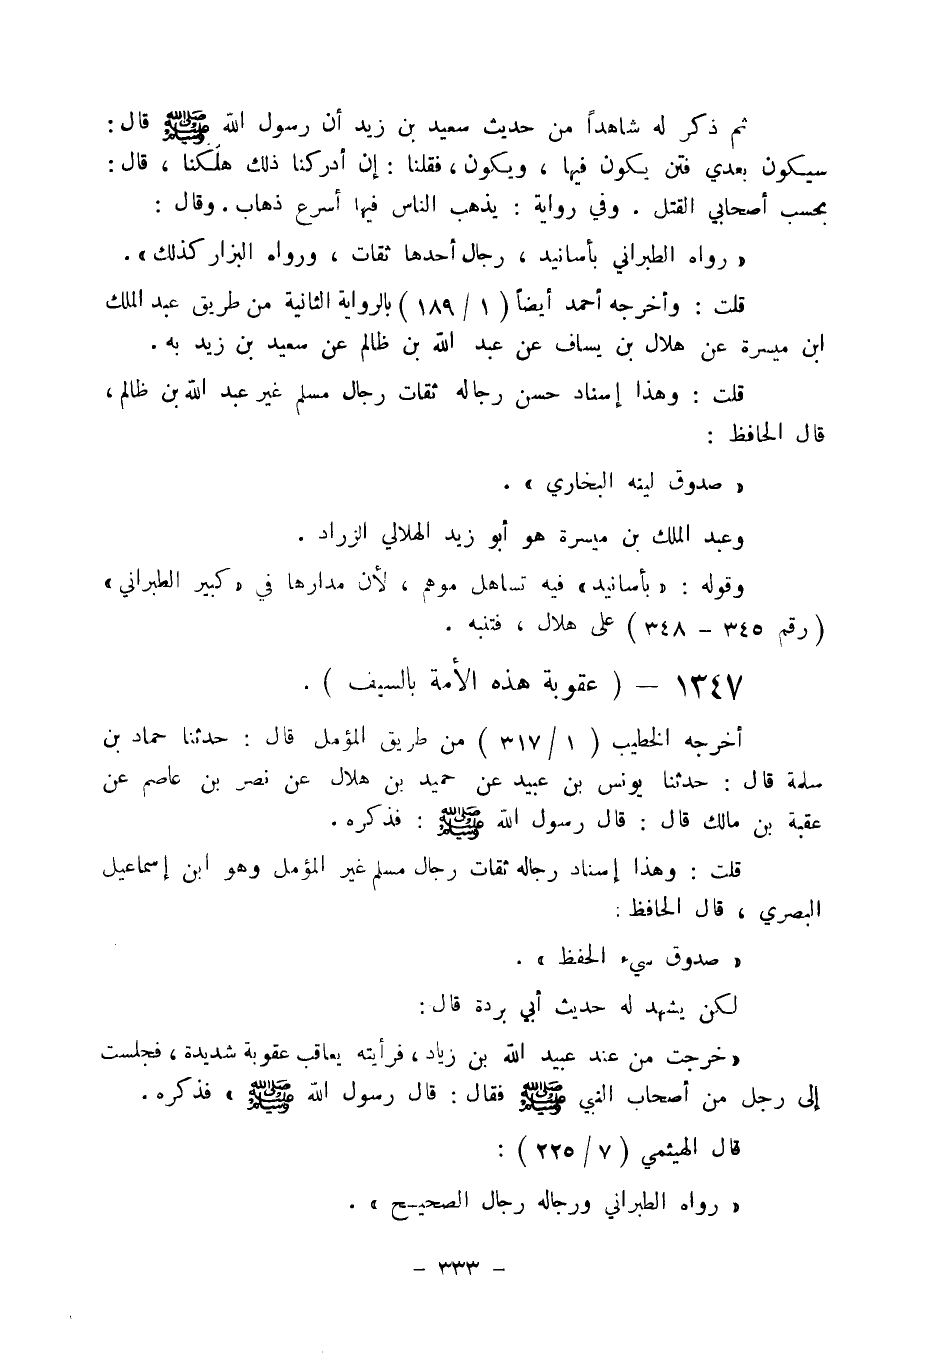 ثم ذكر له شاهداً من حديث سعيد بن زيد أن رسول الله ﷺ قال :
سيكون بعدي فتن يكون فيها ، ويكون ، فقلنا : إن أدركنا ذلك هلَكنا ، قال :
بحسب أصحابي القتل . وفي رواية : يذهب الناس فيها أسرع ذهاب . وقال :
« رواه الطبراني بأسانيد ، رجال أحدها ثقات ، ورواه البزار كذلك » .
قلت : وأخرجه أحمد أيضاً ( ١ / ١٨٩ ) بالرواية الثانية من طريق عبد الملك
ابن ميسرة عن هلال بن يساف عن عبد الله بن ظالم عن سعيد بن زيد به .
قلت : وهذا إسناد حسن رجاله ثقات رجال مسلم غير عبد الله بن ظالم ،
قال الحافظ :
« صدوق لينه البخاري » .
وعبد الملك بن ميسرة هو أبو زيد الهلالي الزراد .
وقوله : « بأسانيد » فيه تساهل موهم ، لأن مدارها في « كبير الطبراني »
( رقم ٣٤٥ - ٣٤٨ ) على هلال ، فتنبه .
١٣٤٧ - ( عقوبة هذه الأمة بالسيف ) .
أخرجه الخطيب ( ١ / ٣١٧ ) من طريق المؤمل قال : حدثنا حماد بن
سلمة قال : حدثنا يونس بن عبيد عن حميد بن هلال عن نصر بن عاصم عن
عقبة بن مالك قال : قال رسول الله ﷺ : فذكره .
قلت : وهذا إسناد رجاله ثقات رجال مسلم غير المؤمل وهو ابن إسماعيل
البصري ، قال الحافظ :
« صدوق سيء الحفظ » .
لكن يشهد له حديث أبي بردة قال :
« خرجت من عند عبيد الله بن زياد ، فرأيته يعاقب عقوبة شديدة ، فجلست
إلى رجل من أصحاب النبي ﷺ فقال : قال رسول الله ﷺ » فذكره .
قال الهيثمي ( ٧ / ٢٢٥ ) :
« رواه الطبراني ورجاله رجال الصحيح » .
- ٣٣٣ -